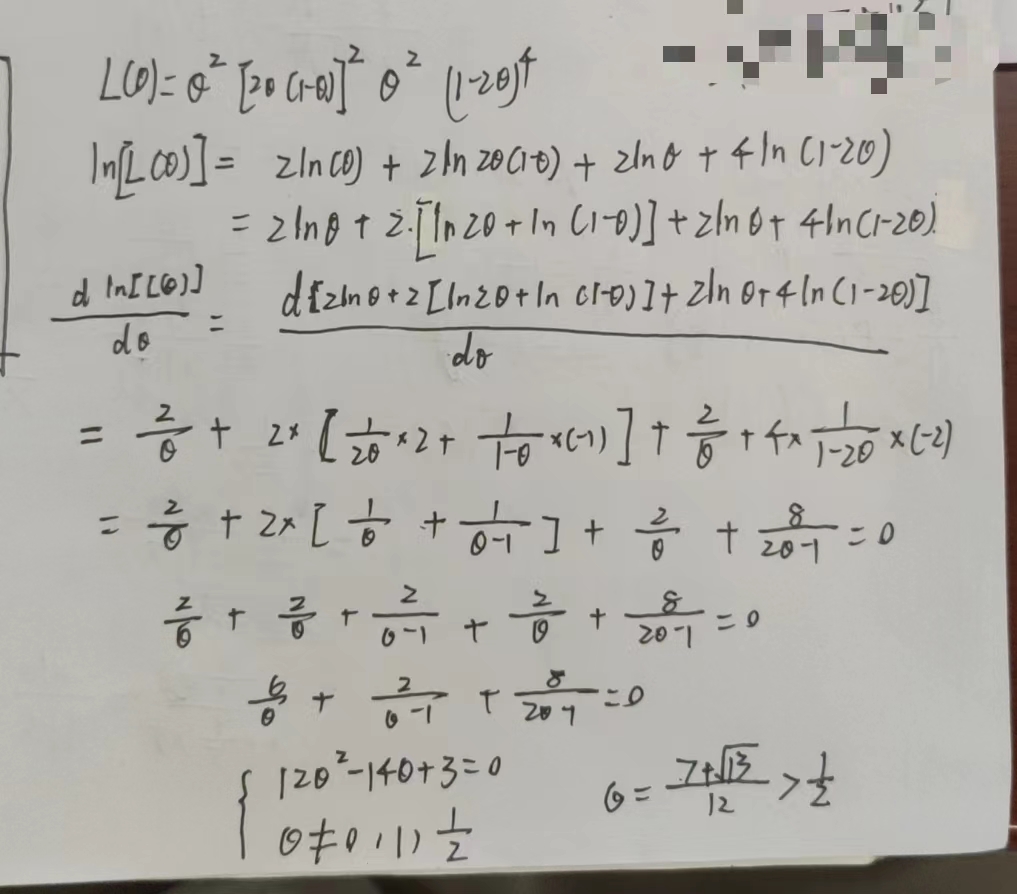 L(θ)=θ² [2θ(1-θ)]² θ² (1-2θ)⁴
ln[L(θ)] = 2ln(θ) + 2ln 2θ(1-θ) + 2lnθ + 4ln(1-2θ)
= 2lnθ + 2·[ln2θ + ln(1-θ)] + 2lnθ + 4ln(1-2θ)
d ln[L(θ)] / dθ = d{2lnθ + 2[ln2θ + ln(1-θ)] + 2lnθ + 4ln(1-2θ)] / dθ
= 2/θ + 2×[1/2θ ×2 + 1/1-θ ×(-1)] + 2/θ + 4× 1/1-2θ ×(-2)
= 2/θ + 2×[1/θ + 1/θ-1] + 2/θ + 8/2θ-1 = 0
2/θ + 2/θ + 2/θ-1 + 2/θ + 8/2θ-1 = 0
6/θ + 2/θ-1 + 8/2θ-1 = 0
{ 12θ²-14θ+3=0 θ= 7+√13/12 > 1/2
θ≠0, 1, 1/2